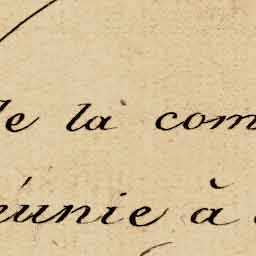 de la com
éunie à